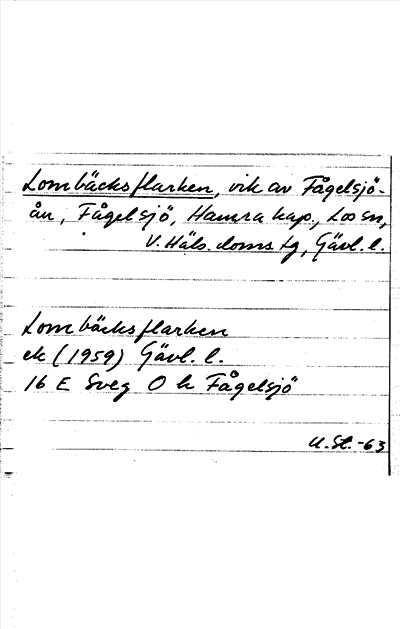 Lombäcksflarken, vik av Fågelsjö-
ån, Fågelsjö, Hamra kap., Loos sn,
V. Häls. doms. tg, Gävl. l.
Lombäcksflarken
ek (1959) Gävl. l.
16 E Sveg O h Fågelsjö
U. St. -63